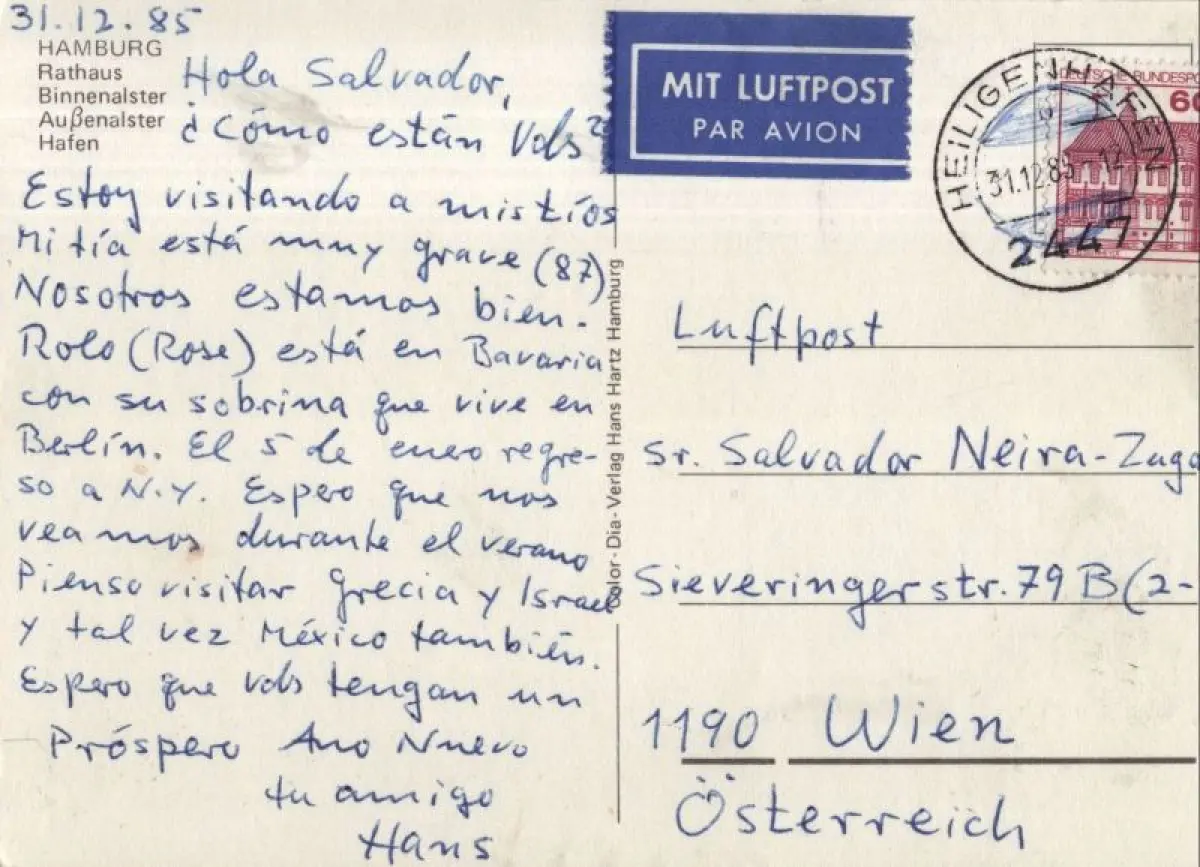 31.12.85
HAMBURG
Rathaus
Binnenalster
Außenalster
Hafen
Hola Salvador,
¿Cómo están Vds?
Estoy visitando a mis tíos
Mi tía está muy grave (87)
Nosotros estamos bien.
Rolo (Rose) está en Bavaria
con su sobrina que vive en
Berlín. El 5 de enero regre-
so a N.Y. Espero que nos
veamos durante el verano
Pienso visitar Grecia y Israel
y tal vez México también.
Espero que vds tengan un
Próspero Ano Nuevo
tu amigo
Hans
Color-Dia-Verlag Hans Hartz Hamburg
MIT LUFTPOST
PAR AVION
DEUTSCHE BUNDESPO
60
HEILIGENHAFEN
31.12.85-12
2447
Luftpost
Sr. Salvador Neira-Zugo
Sieveringerstr. 79 B (2-
1190 Wien
Österreich